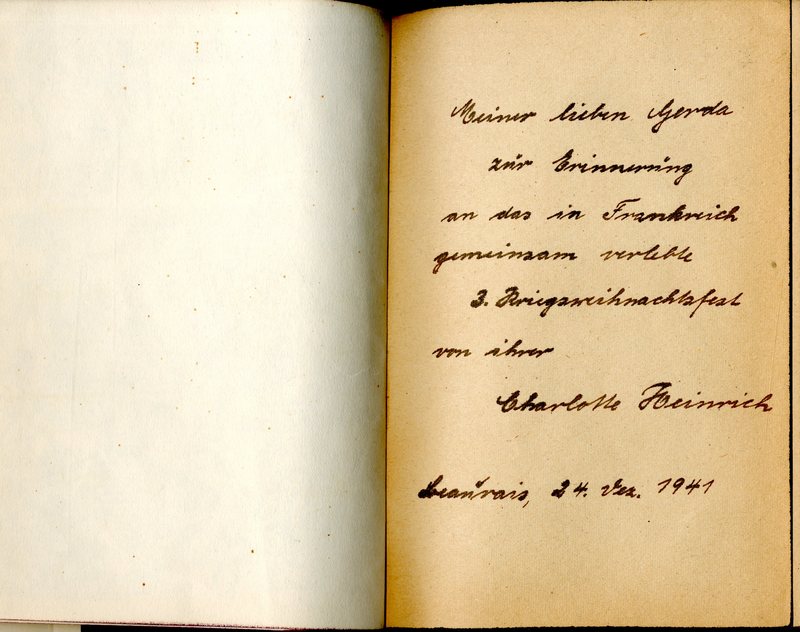 Meiner lieben Gerda
zur Erinnerung
an das in Frankreich
gemeinsam verlebte
3. Kriegsweihnachtsfest
von ihrer
Charlotte Heinrich
Beauvais, 24. Dez. 1941